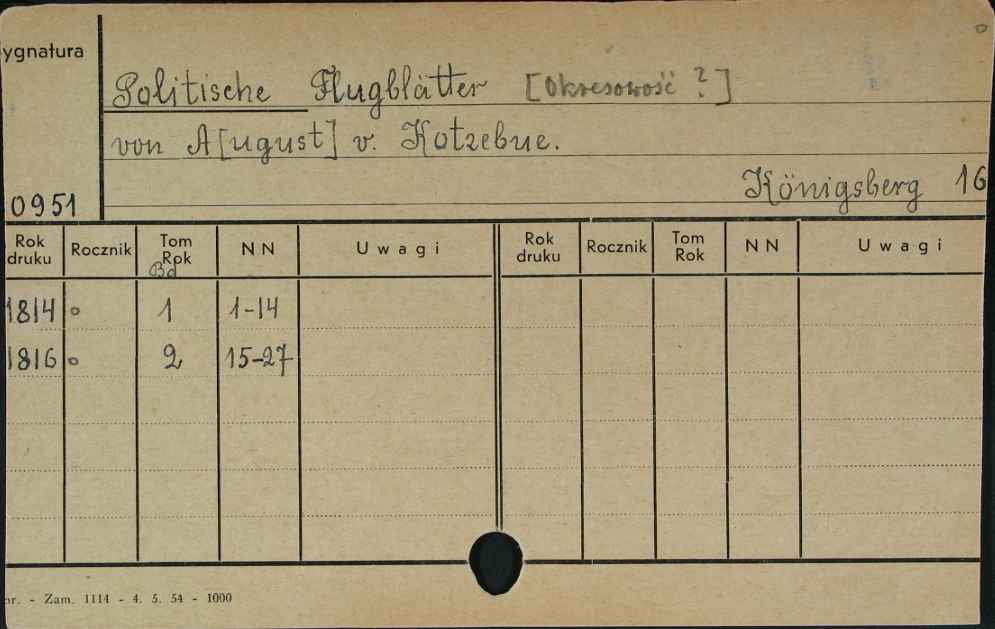 ygnatura
Politische Flugblätter [Okresowość ?]
von A[ugust] v. Kotzebue.
Königsberg 16
0951
Rok druku Rocznik Tom Rok Bd NN Uwagi Rok druku Rocznik Tom Rok NN Uwagi
1814 o 1 1-14
1816 o 2 15-27
or. - Zam. 1114 - 4. 5. 54 - 1000